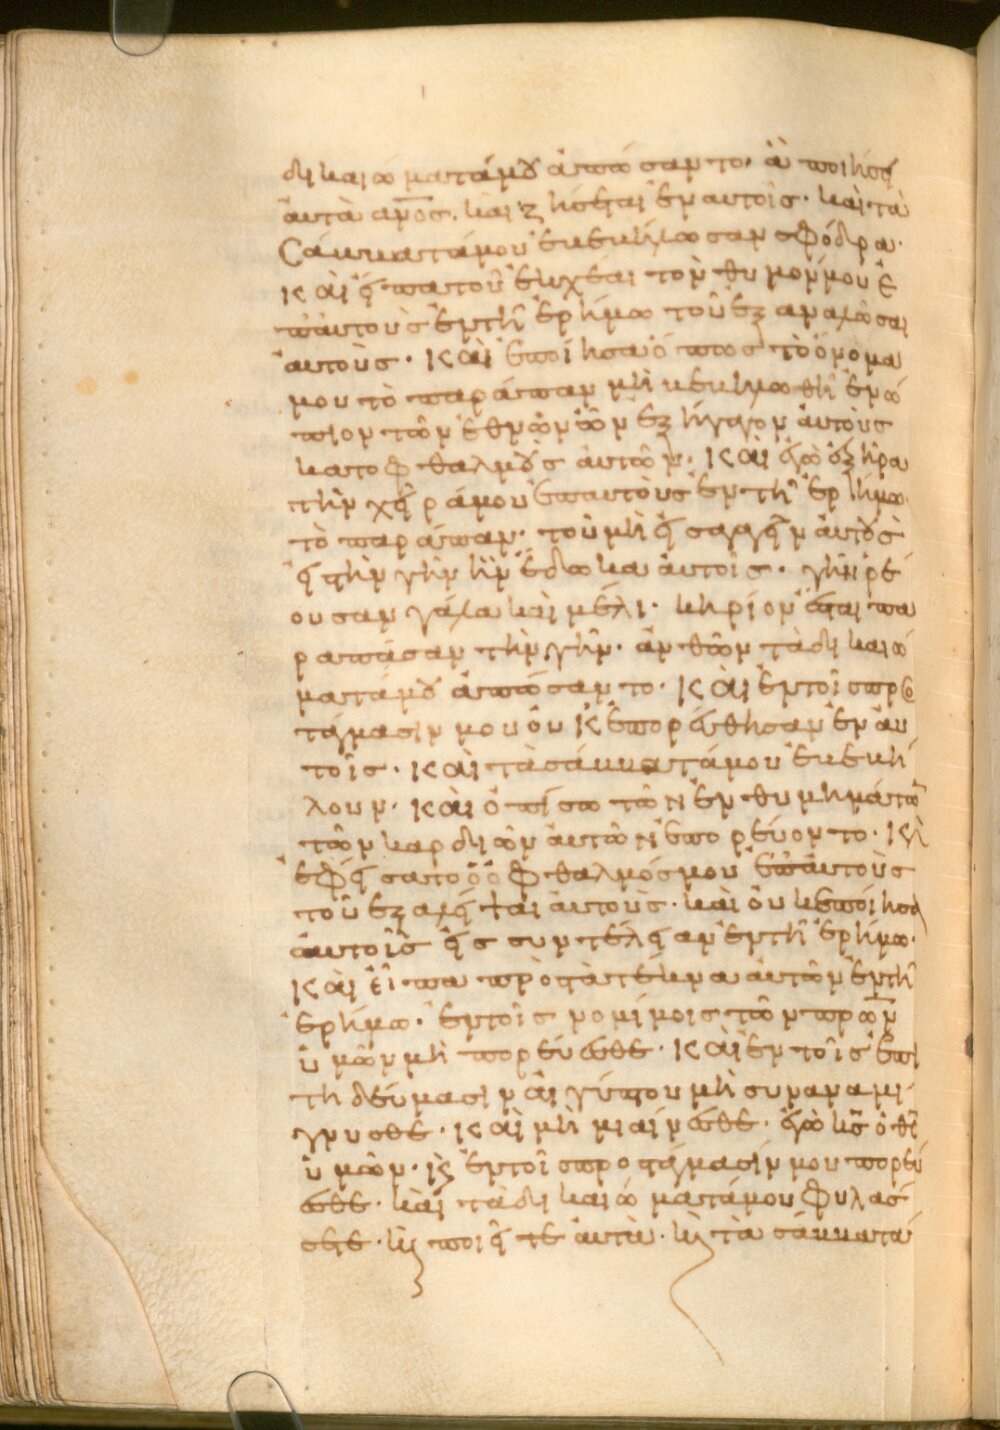 δικαιώματά μου ἀπώσαντο· ἃ ποιήσει
αὐτὰ ἄνος, καὶ ζήσεται ἐν αὐτοῖς· καὶ τὰ
Σάββατά μου ἐβεβήλωσαν σφόδρα·
Καὶ εἶπα τοῦ ἐκχέαι τὸν θυμόν μου ἐ
π' αὐτοὺς ἐν τῆ ἐρήμω τοῦ ἐξαναλῶσαι
αὐτοὺς· Καὶ ἐποίησα ὅπως τὸ ὄνομα
μου τὸ παράπαν μὴ βεβηλωθῆ ἐνώ
πιον τῶν ἐθνῶν ὧν ἐξήγαγον αὐτοὺς
κατ' ὀφθαλμοὺς αὐτῶν· Καὶ ἐγὼ ἐξῆρα
τὴν χεῖρά μου ἐπ' αὐτοὺς ἐν τῆ ἐρήμω
τὸ παράπαν· τοῦ μὴ εἰσαγαγεῖν αὐτοὺς
εἰς τὴν γῆν ἣν ἔδωκα αὐτοῖς· γῆν ῥέ
ουσαν γάλα καὶ μέλι· κηρίον ἐστι πα
ρὰ πᾶσαν τὴν γῆν· ἀνθ' ὧν τὰ δικαιώ
ματά μου ἀπώσαντο· Καὶ ἐν τοῖς προ
τάγμασίν μου οὐκ ἐπορεύθησαν ἐν αὐ
τοῖς· Καὶ τὰ σάββατά μου ἐβεβή
λουν· Καὶ ὀπίσω τῶν ἐνθυμημάτω
τῶν καρδιῶν αὐτῶν ἐπορεύοντο· Κὶ
ἐφείσατο ὁ ὀφθαλμός μου ἐπ' αὐτοὺς
τοῦ ἐξαλεῖψαι αὐτοὺς· καὶ οὐκ ἐποίησα
αὐτοῖς εἰς συντέλειαν ἐν τῆ ἐρήμω·
Καὶ εἶπα πρὸς τὰ τέκνα αὐτῶν ἐν τῆ
ἐρήμω· ἐν τοῖς νομίμοις τῶν πρων
ὑμῶν μὴ πορεύεσθε· Καὶ ἐν τοῖς ἐπι
τηδεύμασιν αἰγύπτου μὴ συναναμί
γνυσθε· Καὶ μὴ μιαίνεσθε· ἐγὼ κς ὁ θς
ὑμῶν· κ ἐν τοῖς προστάγμασίν μου πορεύ
εσθε· καὶ τὰ δικαιώματά μου φυλάσ
σεσθε· κ ποιεῖτε αὐτὰ· κ τὰ σάββατά